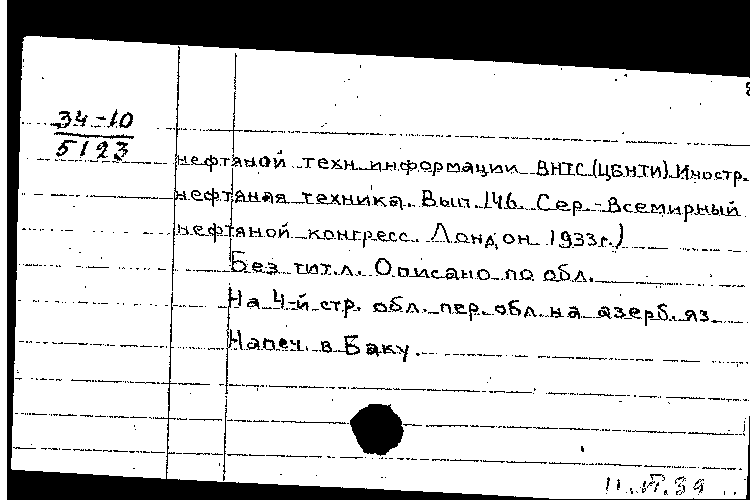 34-10
5123
нефтяной техн. информации ВНТС (ЦБНТИ). Иностр.
нефтяная техника. Вып. 146. Сер.-Всемирный
нефтяной конгресс. Лондон 1933г.)
Без тит.л. Описано по обл.
На 4-й стр. обл. пер. обл. на азерб. яз.
Напеч. в Баку.